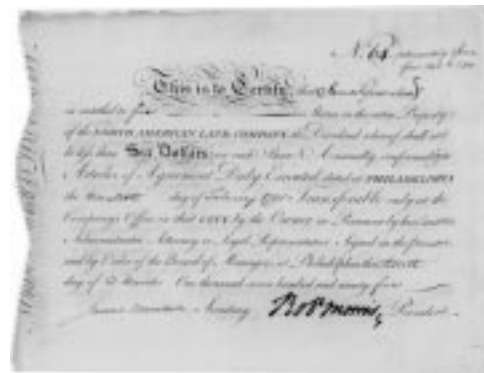 No. 64
This is to Certify, that
is entitled to five Shares in the entire Property
of the NORTH AMERICAN LAND COMPANY, the Dividend whereof shall not
be less than Six Dollars on each Share Annually, conformably to
Articles of Agreement Duly Executed, dated at PHILADELPHIA
the day of February 1795 Transferable only at the
Company's Office in that CITY by the Owner in Person or by his
Administrator Attorney or Legal Representative Signed in the presence
and by Order of the Board of Managers at Philadelphia the
day of March One thousand seven hundred and ninety five
Secretary Robt Morris President